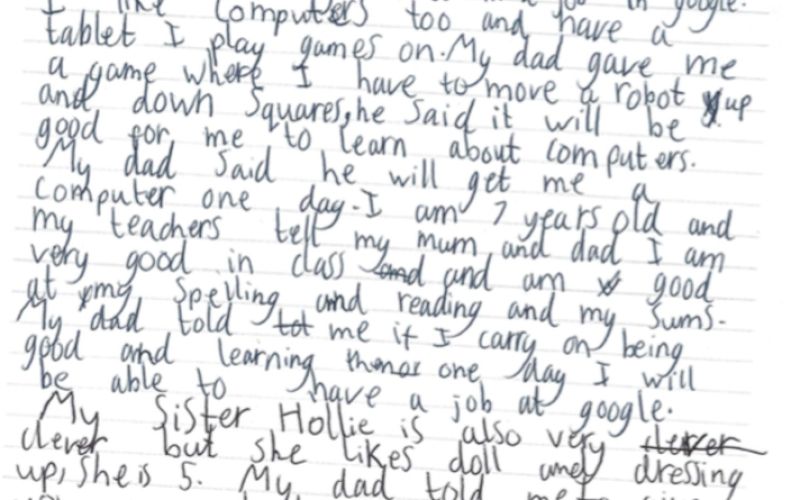 I like computers too and have a
tablet I play games on. My dad gave me
a game where I have to move a robot up
and down squares, he said it will be
good for me to learn about computers.
My dad said he will get me a
computer one day. I am 7 years old and
my teachers tell my mum and dad I am
very good in class and and am good
at my spelling and reading and my sums.
My dad told tot me if I carry on being
good and learning one day I will
be able to have a job at google.
My Sister Hollie is also very clever
clever but she likes doll and dressing
up, She is 5. My dad told me